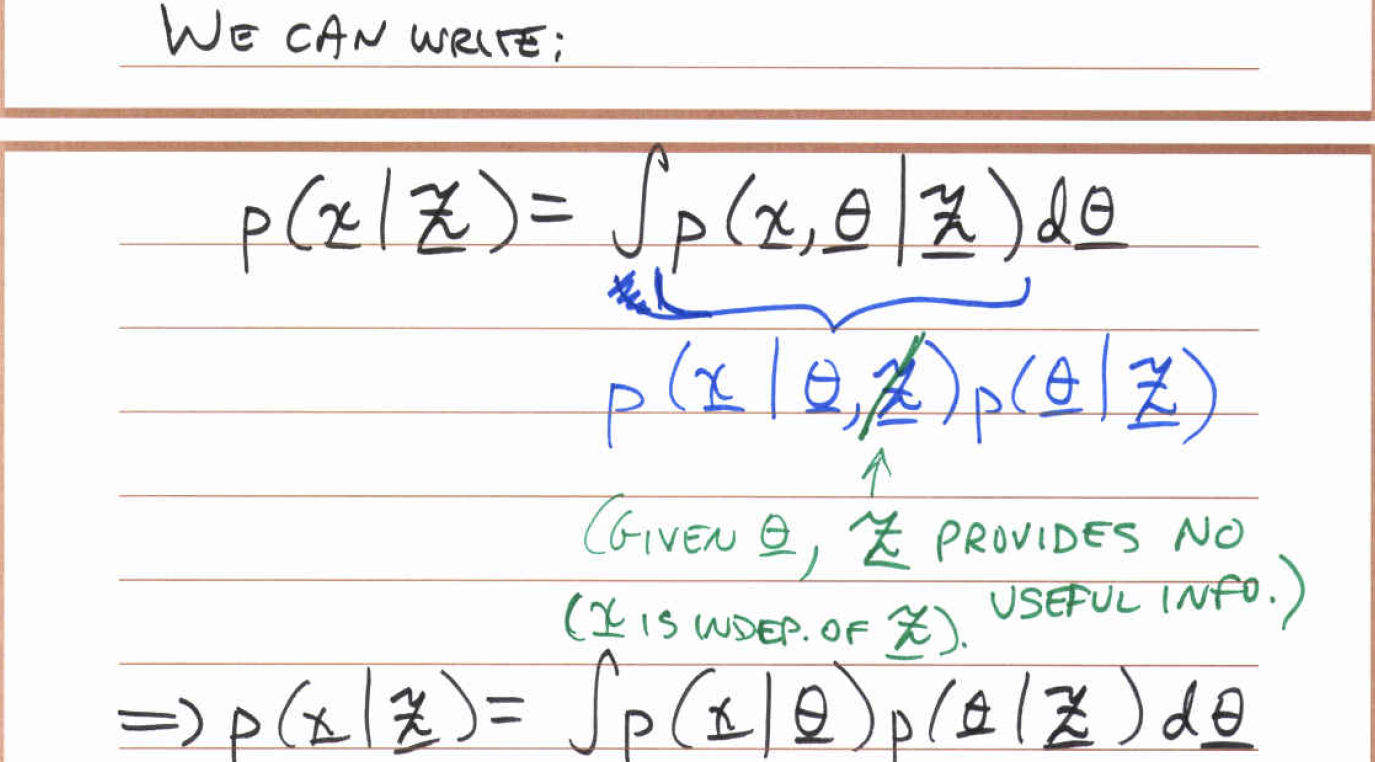 WE CAN WRITE:
p(x̲|𝒳̲) = ∫p(x̲,θ̲|𝒳̲)dθ̲
p(x̲|θ̲,𝒳̲)p(θ̲|𝒳̲)
↑
(GIVEN θ̲, 𝒳̲ PROVIDES NO
USEFUL INFO.)
(x̲ IS INDEP. OF 𝒳̲).
⇒ p(x̲|𝒳̲) = ∫p(x̲|θ̲)p(θ̲|𝒳̲)dθ̲